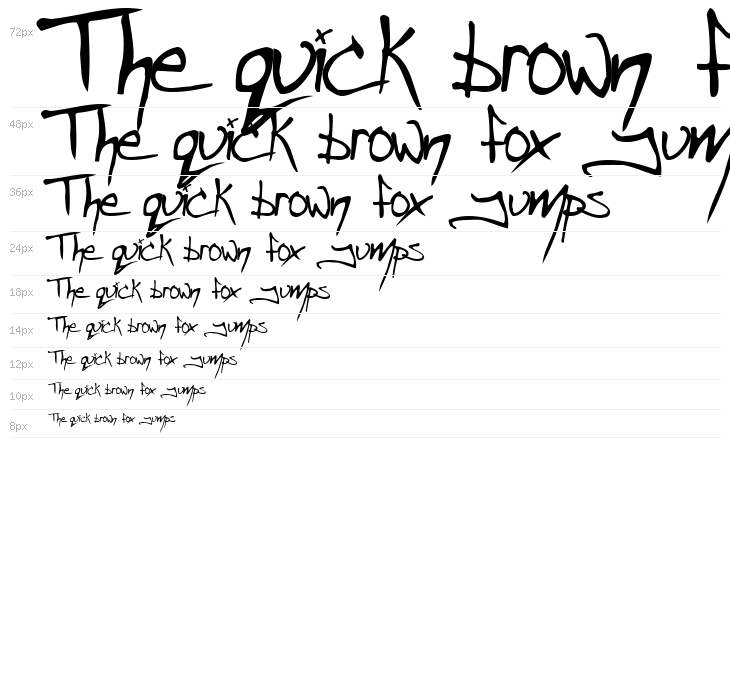 72px The quick brown f
48px The quick brown fox jum
36px The quick brown fox jumps
24px The quick brown fox jumps
18px The quick brown fox jumps
14px The quick brown fox jumps
12px The quick brown fox jumps
10px The quick brown fox jumps
8px The quick brown fox jumps